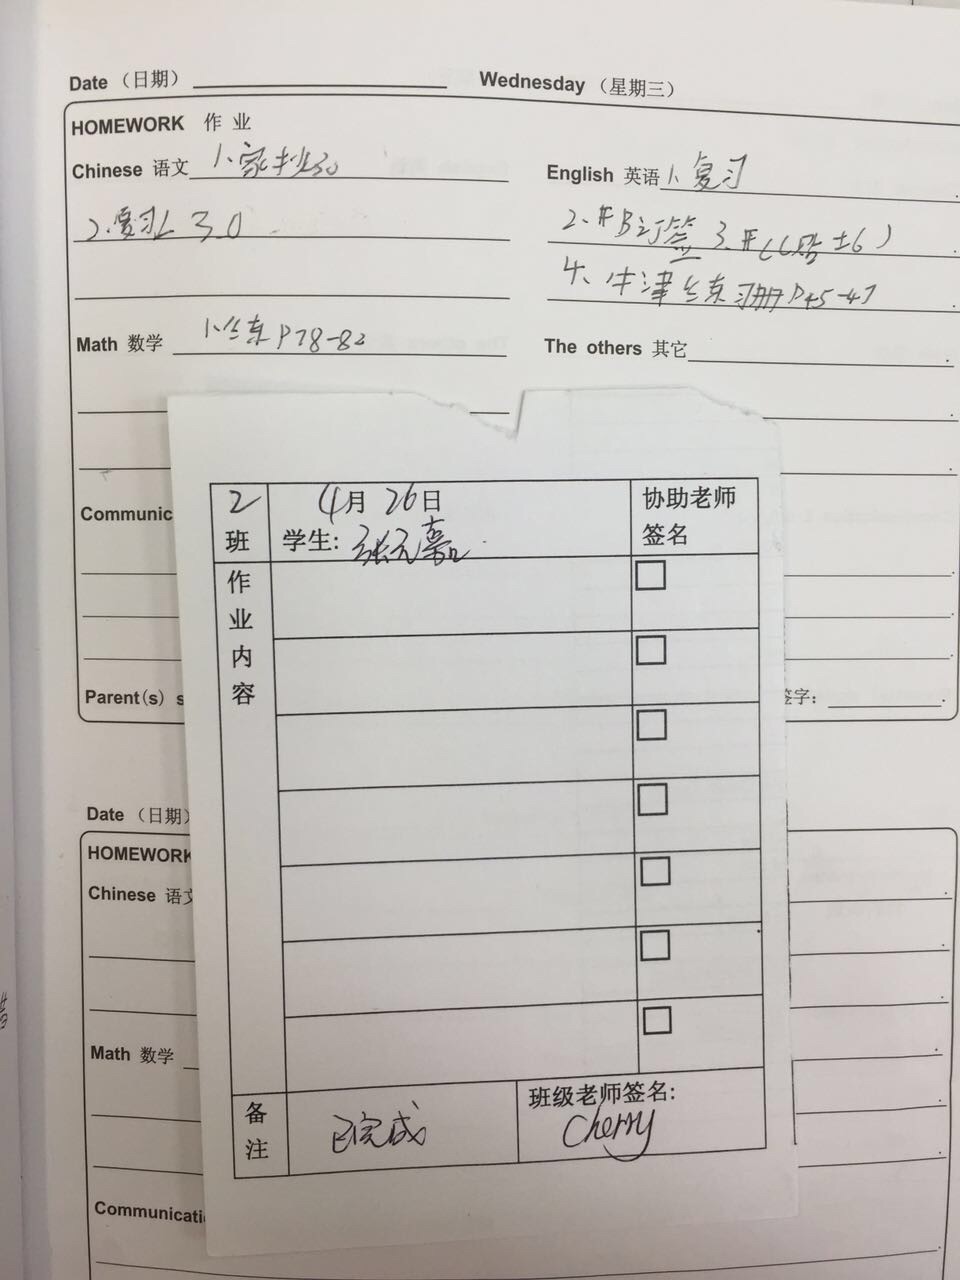 Date （日期） Wednesday （星期三）
HOMEWORK 作 业
Chinese 语文 1、家抄30
2、复习L30
English 英语 1、复习
2、#B订签 3、#
4、牛津练习册P45-47
Math 数学 1、练P78-82
The others 其它
Communic
Parent(s) s
签字:
2班
4月 26日
学生: 张元嘉
协助老师
签名
作业内容
备注
已完成
班级老师签名:
Cherry
Date （日期）
HOMEWORK
Chinese 语文
Math 数学
Communicati